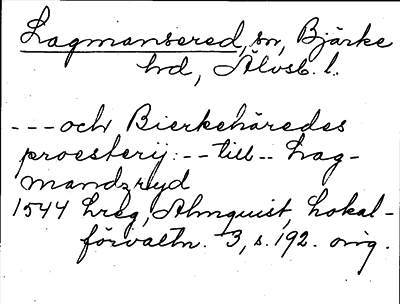 Lagmansered, sn, Bjärke
hd, Älvsb. l.
--- och Bierkehäredes
proesterij: -- till -- Lag-
mandzryd
1544 Lreg, Almquist, Lokal-
förvaltn. 3, s. 192. orig.